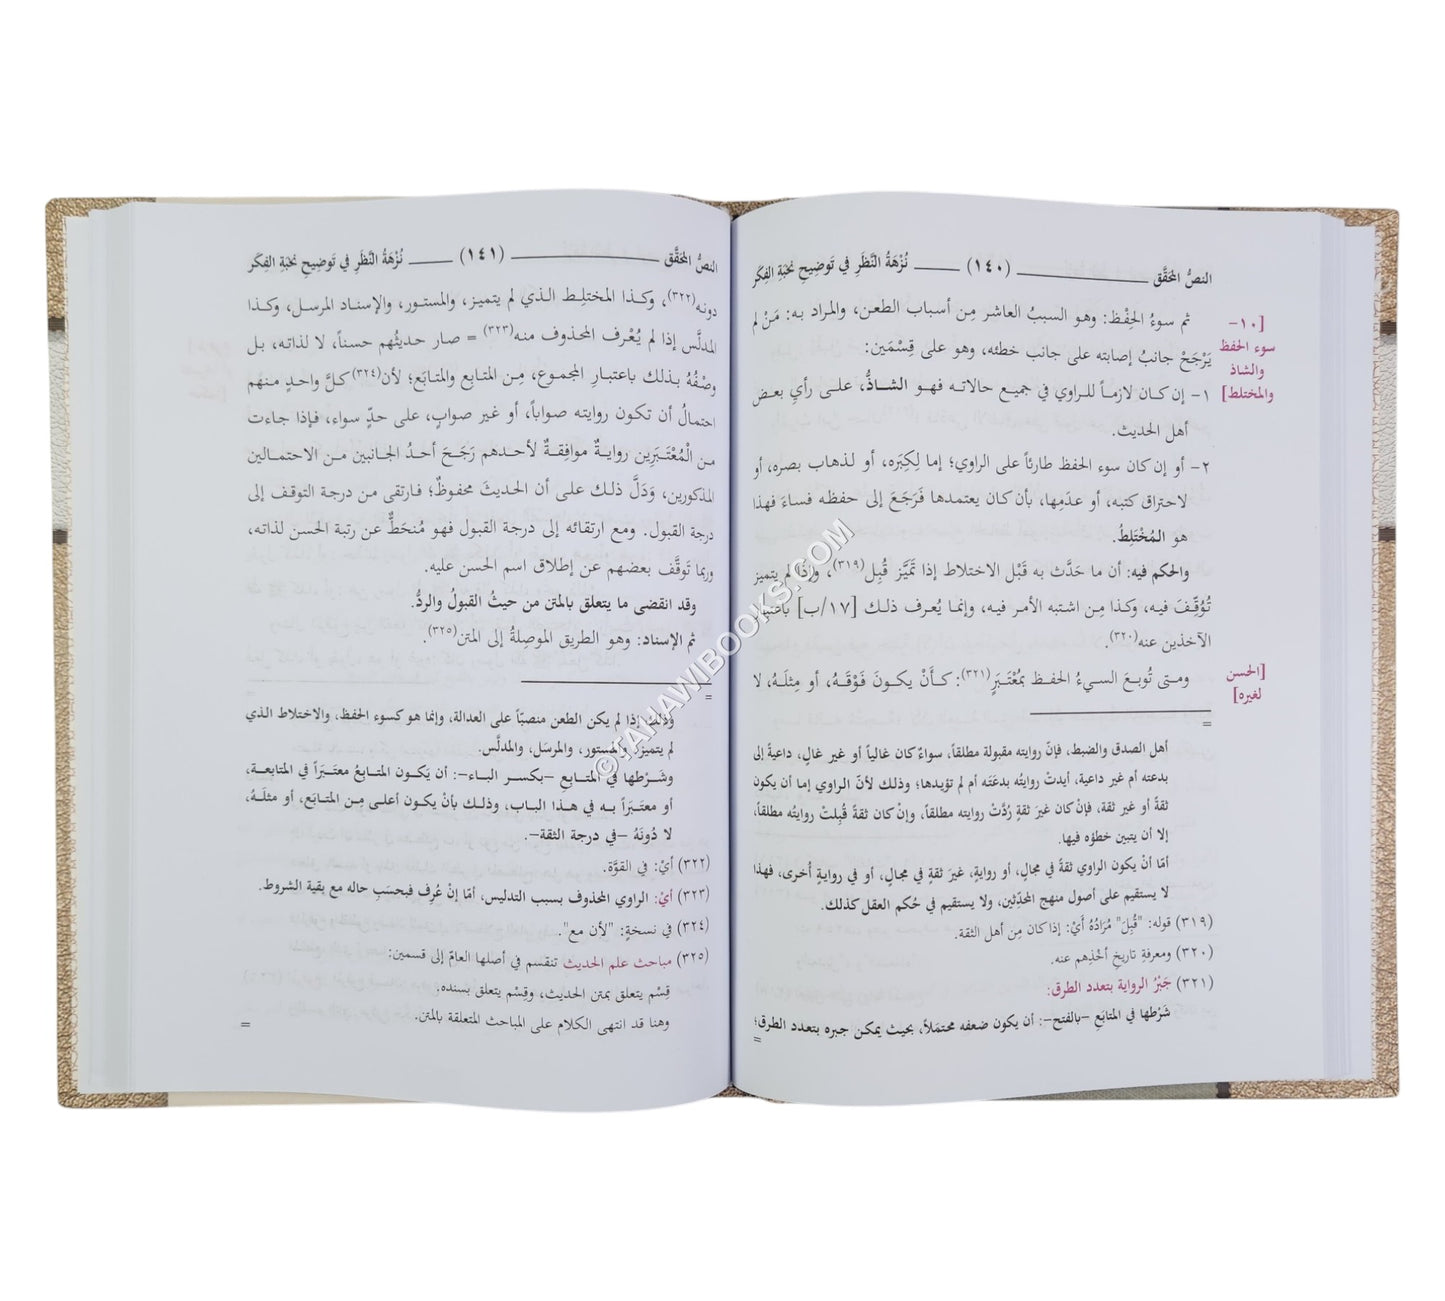 النصُّ المحَقَّق (١٤٠) نُزْهَةُ النَّظَرِ في تَوضِيحِ نخبَةِ الفِكَر
[١٠-
سوء الحفظ
والشاذ
والمختلط]
ثم سوءُ الحِفْظ: وهو السببُ العاشر مِن أسباب الطعن، والمراد به: مَنْ لم
يَرْجَحْ جانبُ إصابته على جانب خطئه، وهو على قِسْمَين:
١- إن كان لازماً للراوي في جميع حالاته فهو الشاذُّ، على رأيِ بعض
أهل الحديث.
٢- أو إن كان سوء الحفظ طارئاً على الراوي؛ إما لِكِبَره، أو لذهاب بصره، أو
لاحتراق كتبه، أو عدَمِها، بأن كان يعتمدها فَرَجَعَ إلى حفظه فساءَ فهذا
هو المُخْتَلِطُ.
والحكم فيه: أن ما حَدَّث به قَبْل الاختلاط إذا تَمَيَّز قُبِل(٣١٩)، وإذا لم يتميز
تُوُقِّفَ فيه، وكذا مِن اشتبه الأمر فيه، وإنما يُعرف ذلك [١٧/ب] باعتبار
الآخذين عنه(٣٢٠).
[الحسن
لغيره]
ومتى تُوبعَ السيءُ الحفظ بمُعْتَبَرٍ(٣٢١): كأَنْ يكونَ فَوْقَهُ، أو مِثلَهُ، لا
=
أهل الصدق والضبط، فإنّ روايته مقبولة مطلقاً، سواءٌ كان غالياً أو غير غالٍ، داعيةً إلى
بدعته أم غير داعية، أيدتْ روايتُه بدعَتَه أم لم تؤيدها؛ وذلك لأنّ الراوي إما أن يكون
ثقةً أو غير ثقة، فإنْ كان غيرَ ثقةٍ رُدَّتْ روايته مطلقاً، وإنْ كان ثقةً قُبِلتْ روايتُه مطلقاً،
إلا أن يتبين خطؤه فيها.
أمّا أنْ يكون الراوي ثقةً في مجالٍ، أو روايةٍ، غيرَ ثقةٍ في مجالٍ، أو في روايةٍ أُخرى، فهذا
لا يستقيم على أصول منهج المحدِّثين، ولا يستقيم في حُكم العقل كذلك.
(٣١٩) قوله: "قُبِلَ" مُرَادُهُ أَيْ: إذا كان مِن أهل الثقة.
(٣٢٠) ومعرفةِ تاريخ أَخْذِهم عنه.
(٣٢١) جَبْرُ الرواية بتعدد الطرق:
شَرْطها في المتابَعِ -بالفتح-: أن يكون ضعفه محتمَلاً، بحيث يمكن جبره بتعدد الطرق؛
=
النصُّ المحَقَّق (١٤١) نُزْهَةُ النَّظَرِ في تَوضِيحِ نخبَةِ الفِكَر
دونه(٣٢٢)، وكذا المختلِط الذي لم يتميز، والمستور، والإسناد المرسل، وكذا
المدلَّس إذا لم يُعْرف المحذوف منه(٣٢٣) = صار حديثُهم حسناً، لا لذاته، بل
وصْفُهُ بذلك باعتبارِ المجموع، مِن المتابِع والمتابَع؛ لأن(٣٢٤) كلَّ واحدٍ منهم
احتمالُ أن تكون روايته صواباً، أو غير صوابٍ، على حدٍّ سواء، فإذا جاءت
من الْمُعْتَبَرِين روايةٌ موافِقةٌ لأحدهم رَجَحَ أحدُ الجانبين من الاحتمالين
المذكورين، وَدَلَّ ذلك على أن الحديثَ محفوظٌ؛ فارتقى من درجة التوقف إلى
درجة القبول. ومع ارتقائه إلى درجة القبول فهو مُنحَطٌّ عن رتبة الحسن لذاته،
وربما تَوقَّف بعضهم عن إطلاق اسم الحُسن عليه.
وقد انقضى ما يتعلق بالمتن من حيثُ القبولُ والردُّ.
ثم الإسناد: وهو الطريق الموصِلةُ إلى المتن(٣٢٥).
=
وذلك إذا لم يكن الطعن منصبّاً على العدالة، وإنما هو كسوء الحفظ، والاختلاط الذي
لم يتميزْ، والمستور، والمرسَل، والمدلَّس.
وشَرْطها في المتابِعِ -بكسر الباء-: أن يَكون المتابعُ معتَبَراً في المتابعة،
أو معتَبَراً به في هذا الباب، وذلك بأنْ يكون أعلى مِن المتابَع، أو مثلَهُ،
لا دُونَهُ -في درجة الثقة-.
(٣٢٢) أيْ: في القوَّة.
(٣٢٣) أيْ: الراوي المحذوف بسبب التدليس، أمّا إنْ عُرِف فيحسَبِ حاله مع بقية الشروط.
(٣٢٤) في نسخةٍ: "لأن مع".
(٣٢٥) مباحث علم الحديث تنقسم في أصلها العامّ إلى قسمين:
قِسْم يتعلق بمتن الحديث، وقِسْم يتعلق بسنده.
وهنا قد انتهى الكلام على المباحث المتعلقة بالمتن.
=
© TAHAWIBOOKS.COM